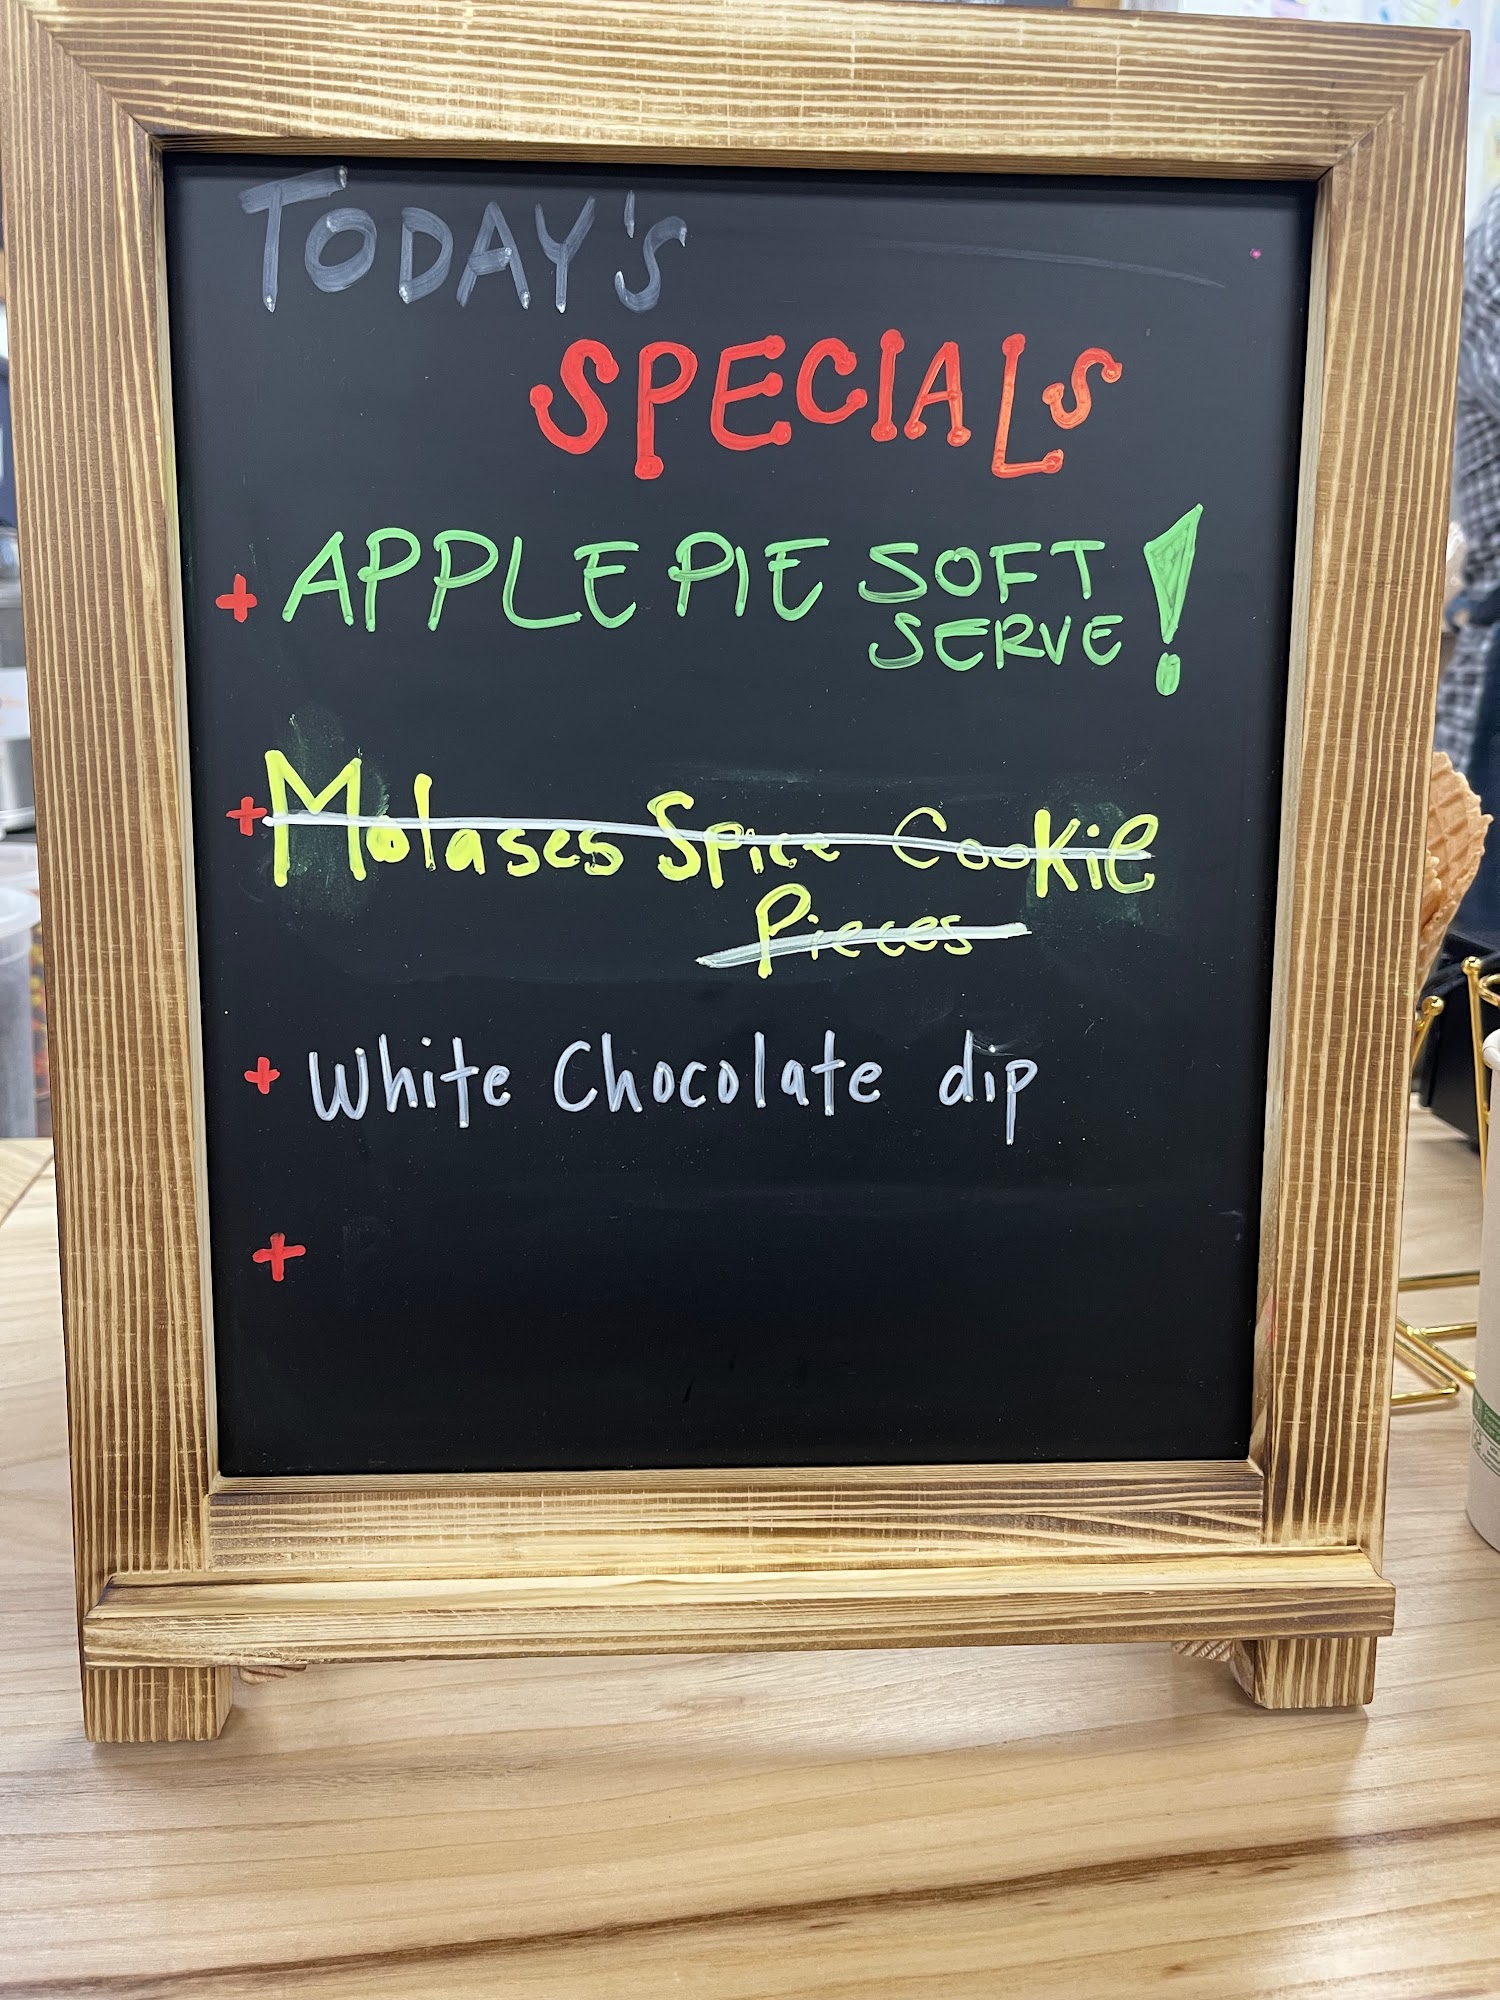 TODAY'S
SPECIALS
+ APPLE PIE SOFT
SERVE!
+ Molases Spice Cookie
Pieces
+ White Chocolate dip
+